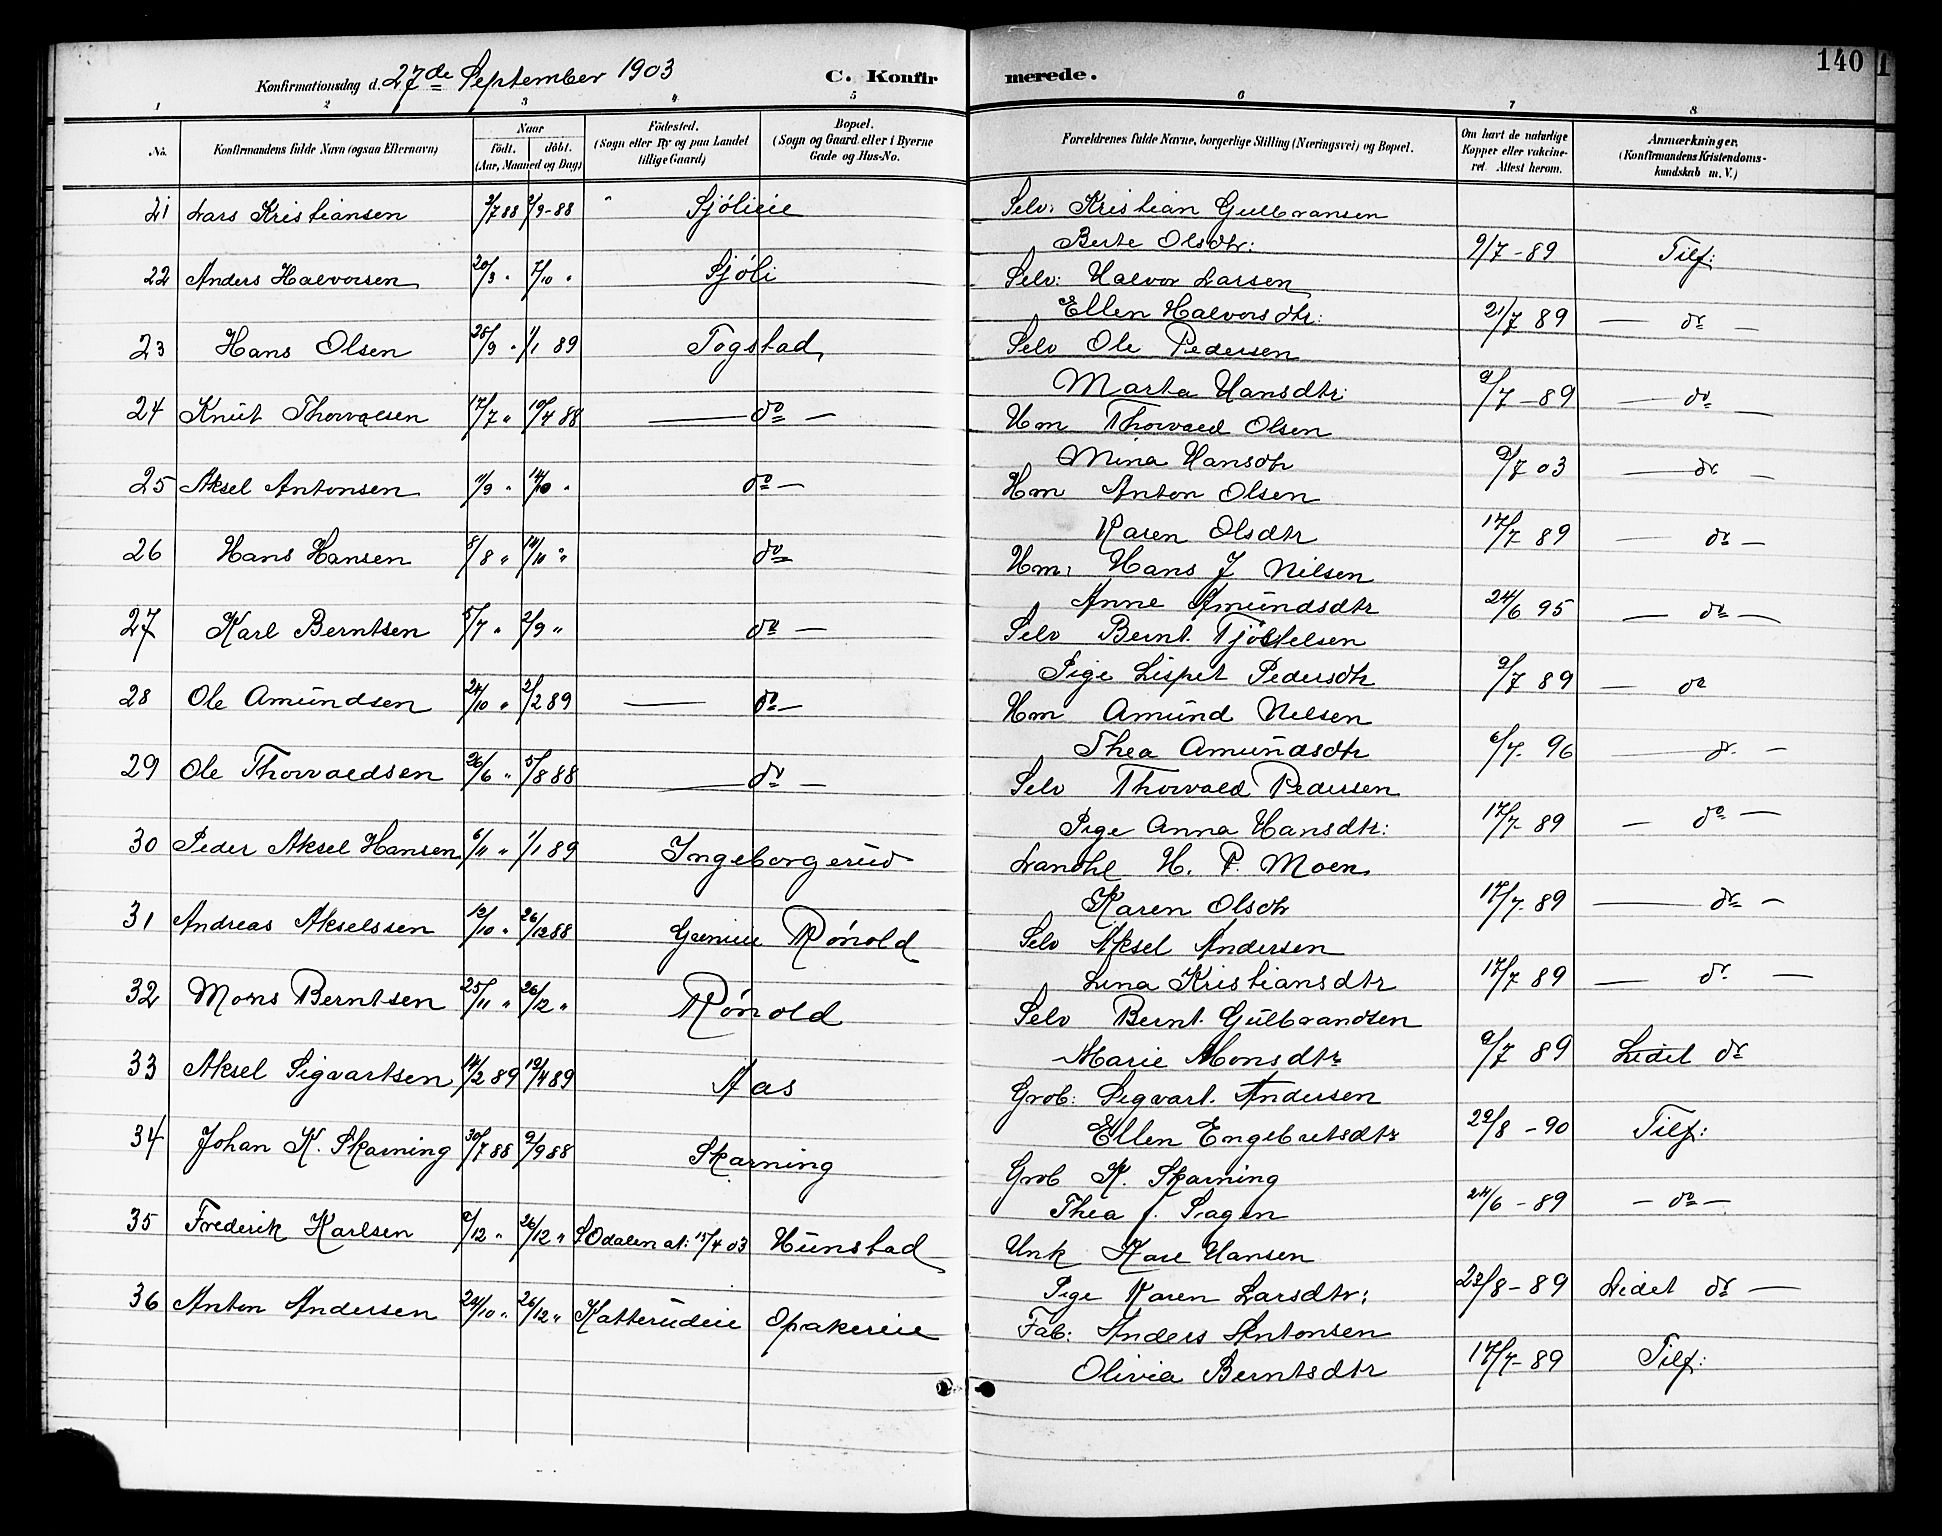 Konfirmationsdag d. 27de September 1903 C. Konfir merede. 140
1 2 3 4 5 6 7 8
No. Konfirmandens fulde Navn (ogsaa Efternavn) Naar födt. döbt. (Aar, Maaned og Dag) Födested. (Sogn eller By og paa Landet tillige Gaard) Bopæl. (Sogn og Gaard eller i Byerne Gade og Hus-No. Forældrenes fulde Navne, borgerlige Stilling (Næringsvei) og Bopæl. Om havt de naturlige Kopper eller vakcineret. Attest herom. Anmærkninger. (Konfirmandens Kristendomskundskab m. V.)
21 Lars Kristiansen 3/7 88 2/9-88 Sjölieie Selv: Kristian Gulbransen
Berte Olsdtr: 9/7-89 Tilf:
22 Anders Halvorsen 20/3 " 7/10 " Sjöli Selv: Halvor Larsen
Ellen Halvorsdtr: 21/7 89 — do —
23 Hans Olsen 25/9 " 1/1 89 Togstad Selv Ole Pedersen
Marta Hansdtr: 9/7-89 — do —
24 Knut Thorvalsen 17/7 " 10/4 88 — do — Hm Thorvald Olsen
Mina Hansdtr 9/7 03 — do —
25 Aksel Antonsen 11/9 " 14/10 " do — Hm Anton Olsen
Karen Olsdtr 17/7 89 — do —
26 Hans Hansen 8/8 " 14/10 " do Hm: Hans J Nilsen
Anne Amundsdtr 24/6 95 — do —
27 Karl Berntsen 5/7 " 2/9 " do — Selv Bernt Tjöstelsen
Pige Lispet Pedersdtr 9/7 89 — do
28 Ole Amundsen 24/10 " 2/2 89 — do — Hm Amund Nilsen
Thea Amundsdtr 6/7. 96 — do —
29 Ole Thorvaldsen 26/6 " 5/8 88 — do — Selv Thorvald Pedersen
Pige Anna Hansdtr: 17/7-89 — do —
30 Peder Aksel Hansen 6/11 " 1/1 89 Ingeborgerud Landhl H. P. Moen
Karen Olsdtr 17/7-89 — do —
31 Andreas Akselssen 12/10 " 26/12 88 Rönold Selv Aksel Andersen
Lina Kristiansdtr 17/7 89 — do —
32 Mons Berntsen 25/11 " 26/12 " Rönold Selv Bernt Gulbrandsen
Marie Monsdtr 9/7 89 Lidet do
33 Aksel Sigvartsen 14/2 89 19/4 89 Aas Grob: Sigvart Andersen
Ellen Engebretsdtr 29/8-90 Tilf:
34 Johan K. Skarning 30/7 88 9/9 88 Skarning Grob K. Skarning
Thea J. Sagen 24/6-89 — do —
35 Frederik Karlsen 6/12 " 26/12 " S Odalen at: 15/4 03 Hunstad Unk Karl Hansen
Pige Karen Larsdtr: 23/8-89 Lidet do —
36 Anton Andersen 24/10 " 26/12 " Katterudeie Opakereie Fab: Anders Antonsen
Olivia Berntsdtr 17/7-89 Tilf: